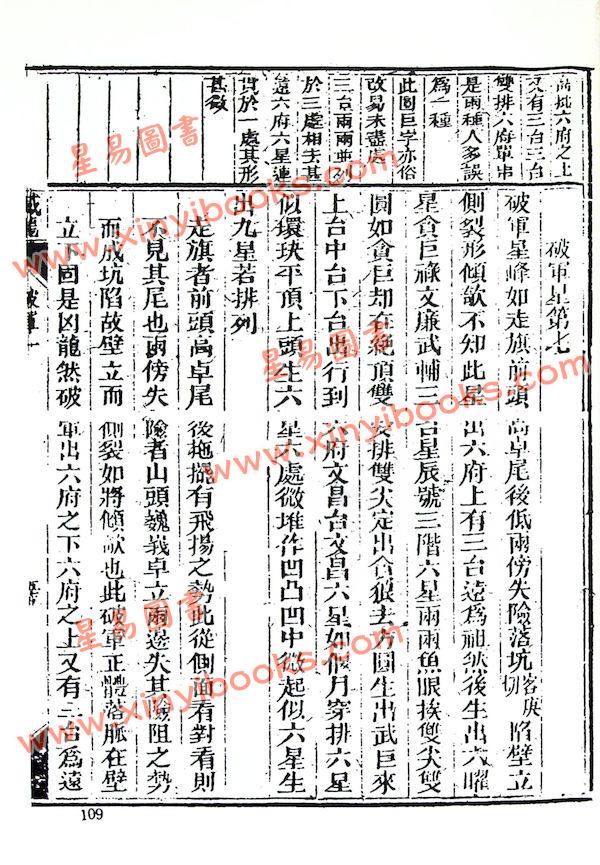 高挑六府之上
又有三台三台
雙排六府單串
是兩種人多誤
為一種
此圓巨字亦俗
改易未盡處
三台兩兩並列
於三處相去甚
遠六府六星連
貫於一處其形
甚微
破軍星第七
破軍星峰如走旗前頭高卓尾後低兩傍失險落坑客庚切陷壁立
側裂形傾欹不知此星出六府上有三台遠為祖然後生出六曜
星貪巨祿文廉武輔三台星辰號三階六星兩兩魚眼挨雙尖雙
圓如貪巨却在絕頂雙安排雙尖定出貪狼去方圓生出武巨來
上台中台下台出行到六府文昌台文昌六星如偃月穿排六星
似環玦平頂上頭生六星六處微堆作凹凸凹中微起似六星生
出九星若排列
走旗者前頭高卓尾後拖擺有飛揚之勢此從側面看對看則
不見其尾也兩傍失險者山頭巍峩卓立兩邊失其險阻之勢
而成坑陷故壁立而側裂如將傾欹也此破軍正體落脈在壁
立下固是凶龍然破軍出六府之下六府之上又有三台為遠
撼龍
破軍
109
星易圖書
www.xinyibooks.com
星易圖書
www.xinyibooks.com
星易圖書
www.xinyibooks.com